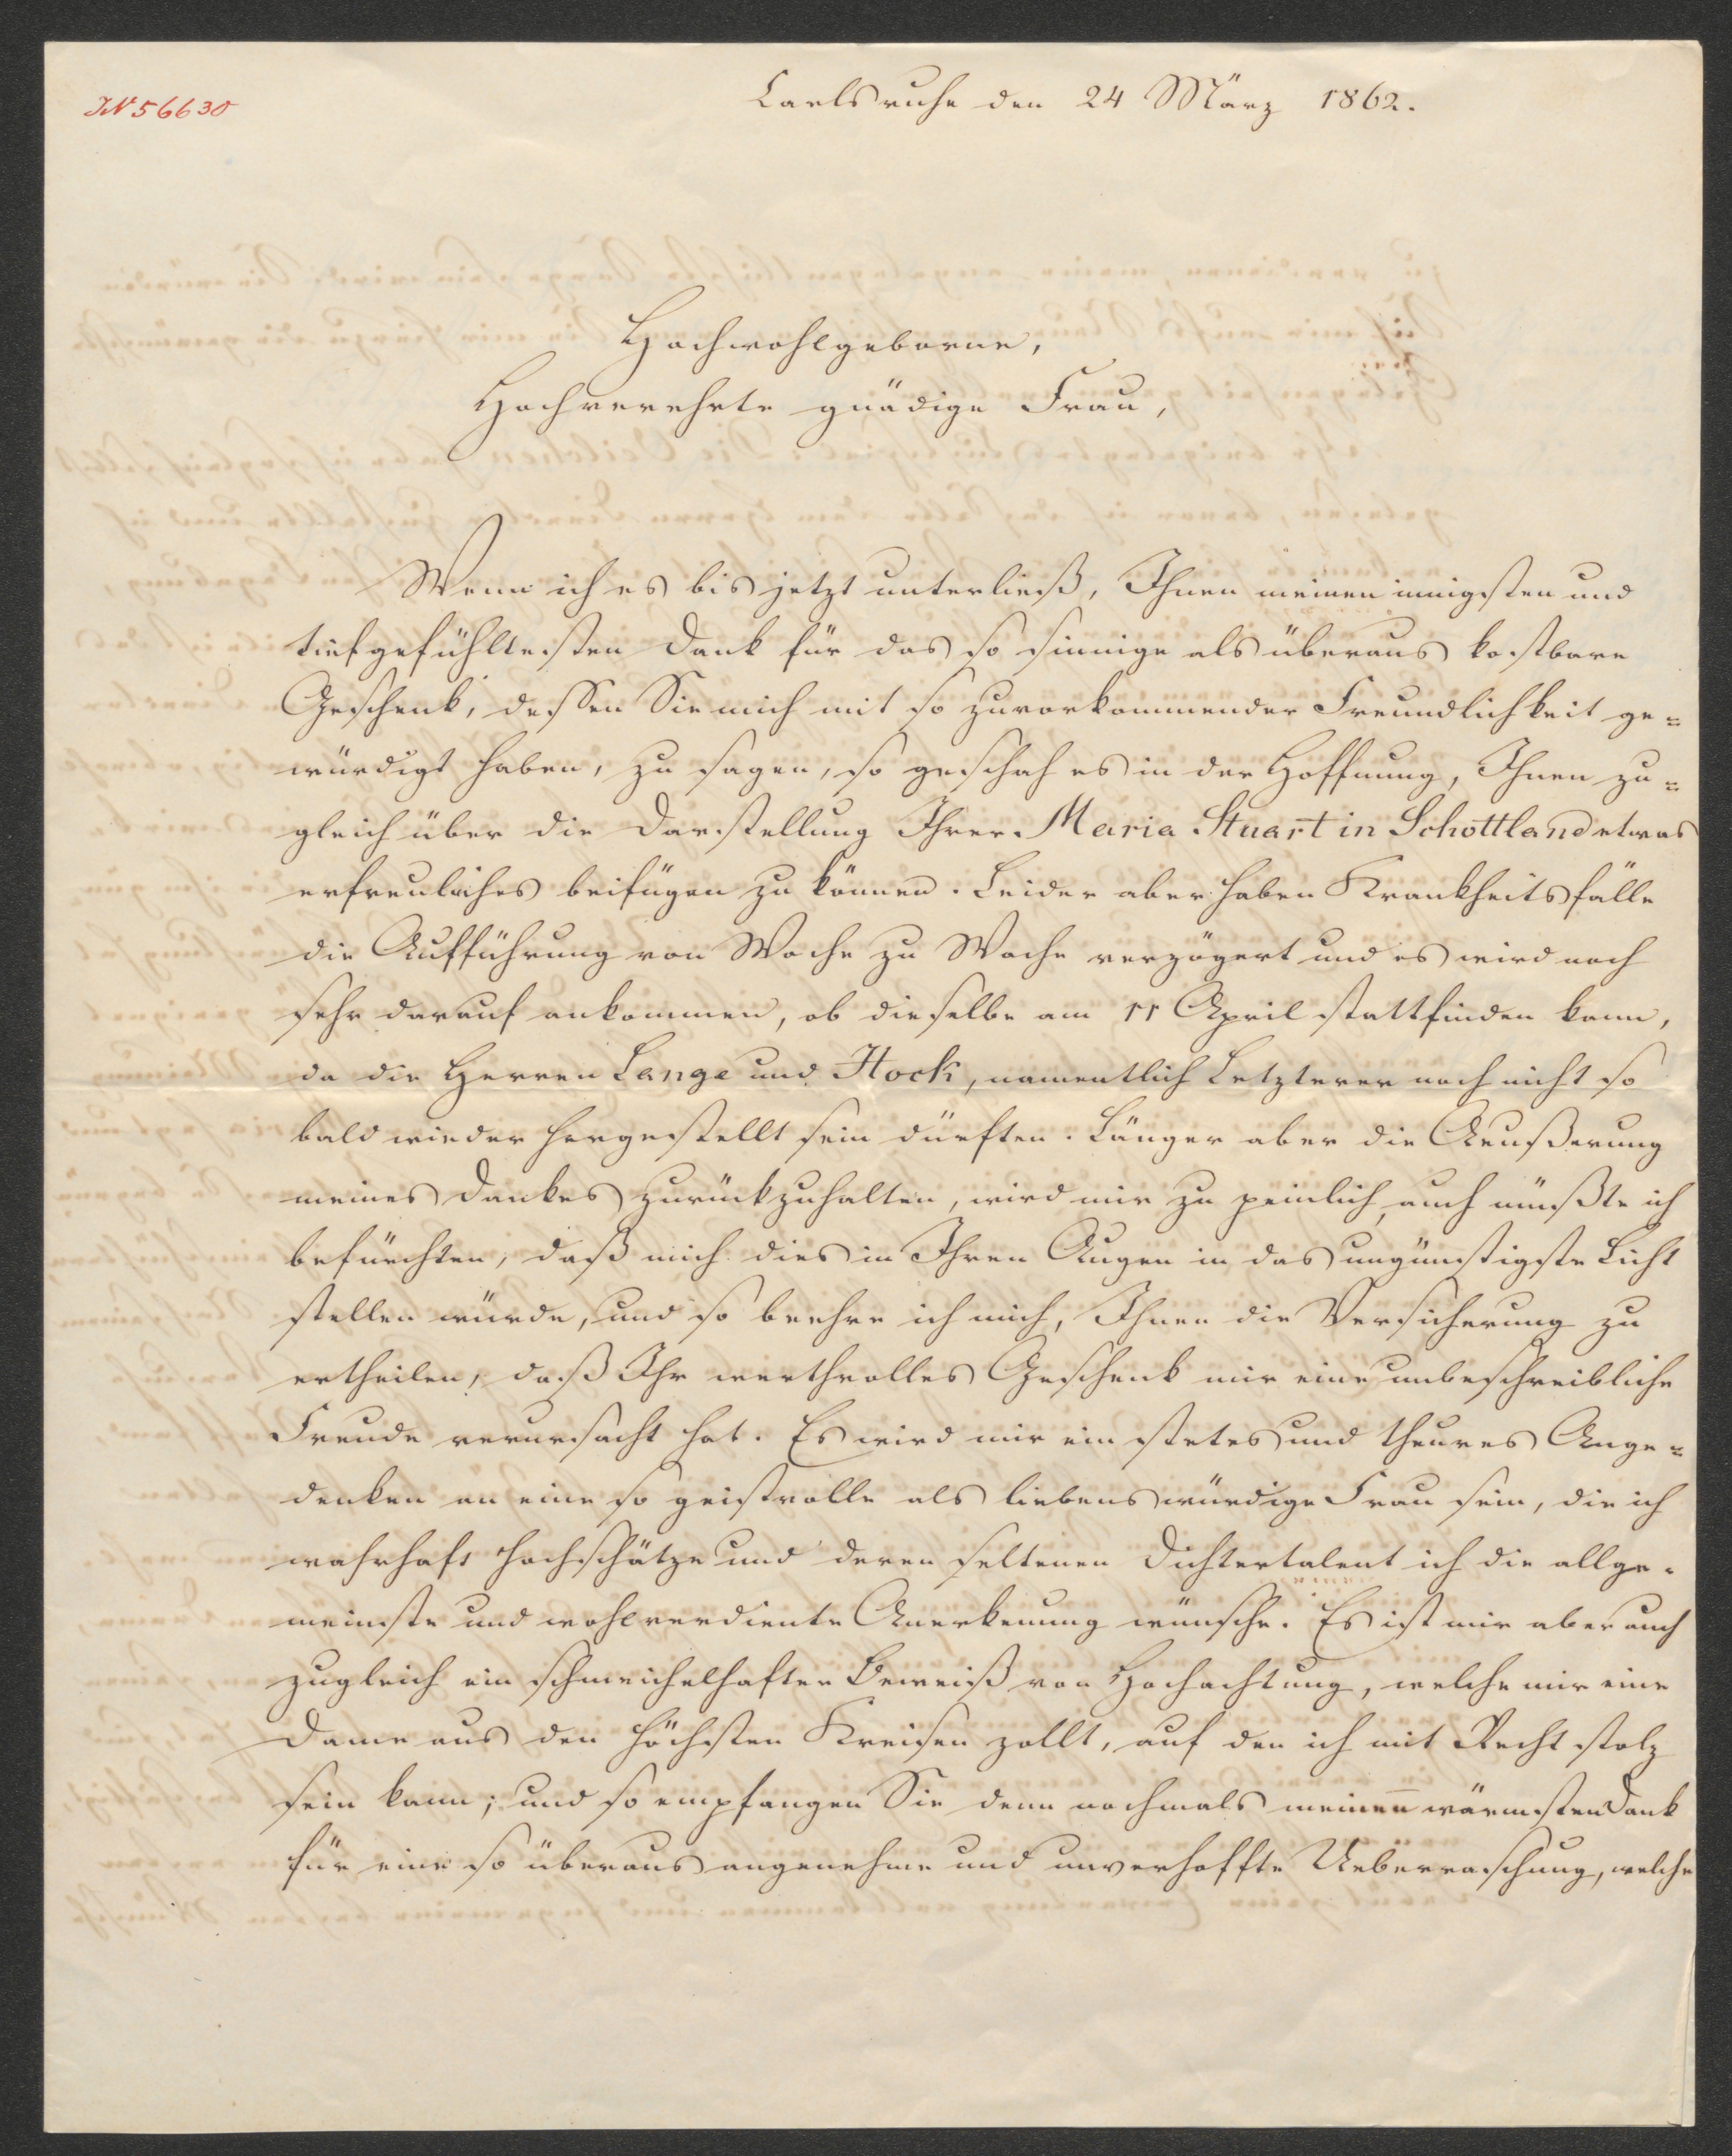 IN 56630
Carlsruhe den 24 März 1862.
Hochwohlgeborne,
Hochverehrte gnädige Frau,
Wenn ich es bis jetzt unterließ, Ihnen meinen innigsten und
tiefgefühltesten Dank für das so sinnige als überaus kostbare
Geschenk, dessen Sie mich mit so zuvorkommender Freundlichkeit ge=
würdigt haben, zu sagen, so geschah es in der Hoffnung, Ihnen zu=
gleich über die Darstellung Ihrer Maria Stuart in Schottland etwas
erfreuliches beifügen zu können. Leider aber haben Krankheitsfälle
die Aufführung von Woche zu Woche verzögert und es wird noch
sehr darauf ankommen, ob dieselbe am 11 April stattfinden kann,
da die Herren Lange und Hock, namentlich Letzterer noch nicht so
bald wieder hergestellt sein dürften. Länger aber die Aeußerung
meines Dankes zurückzuhalten, wird mir zu peinlich, auch müßte ich
befürchten, daß mich dies in Ihren Augen in das ungünstigste Licht
stellen würde, und so beehre ich mich, Ihnen die Versicherung zu
ertheilen, daß Ihr werthvolles Geschenk mir eine unbeschreibliche
Freude verursacht hat. Es wird mir ein stetes und theures Ange=
denken an eine so geistvolle als liebenswürdige Frau sein, die ich
wahrhaft hochschätze und deren seltenen Dichtertalent ich die allge=
meinste und wohlverdiente Anerkenung wünsche. Es ist mir aber auch
zugleich ein schmeichelhafter Beweiß von Hochachtung, welche mir eine
Dame aus den höchsten Kreisen zollt, auf den ich mit Recht stolz
sein kann; und so empfangen Sie denn nochmals meinen wärmsten Dank
für eine so überaus angenehme und unverhoffte Ueberraschung, welche